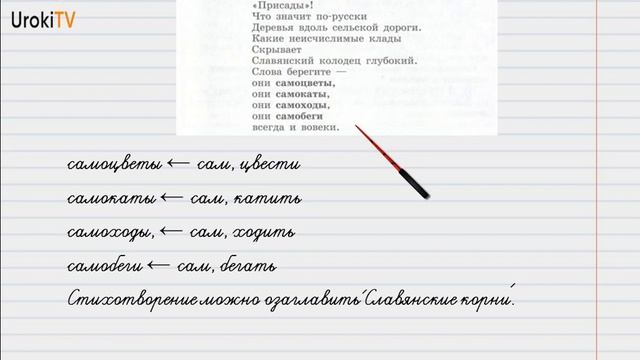 UrokiTV
«Присады»!
Что значит по-русски
Деревья вдоль сельской дороги.
Какие неисчислимые клады
Скрывает
Славянский колодец глубокий.
Слова берегите —
они самоцветы,
они самокаты,
они самоходы,
они самобеги
всегда и вовеки.
самоцветы ← сам, цвести
самокаты ← сам, катить
самоходы, ← сам, ходить
самобеги ← сам, бегать
Стихотворение можно озаглавить "Славянские корни".